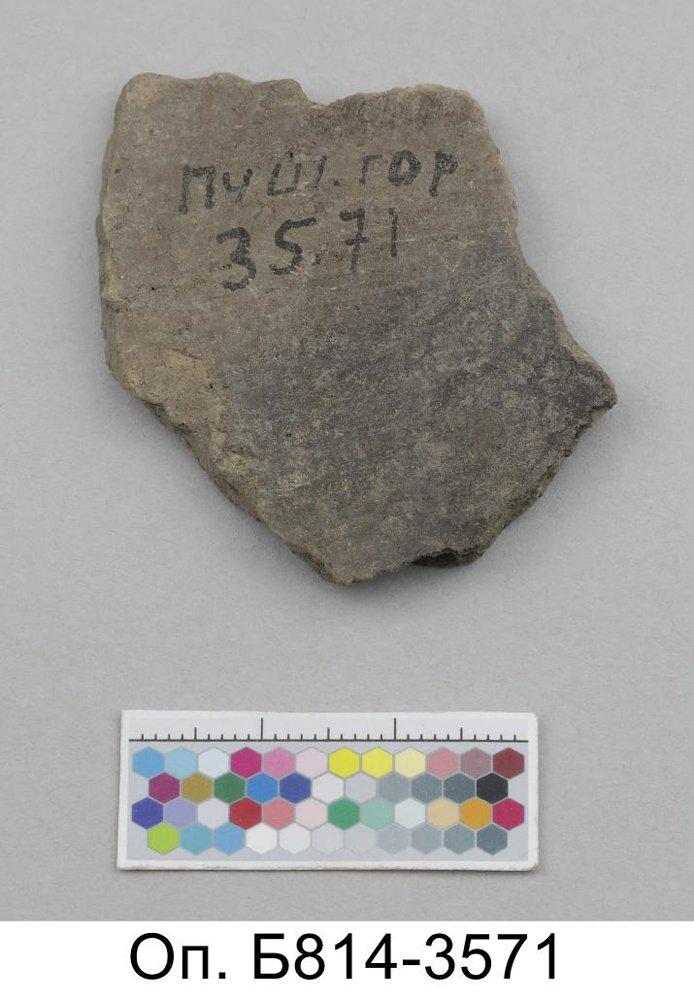 ПУШ. ГОР
35.71
Оп. Б814-3571